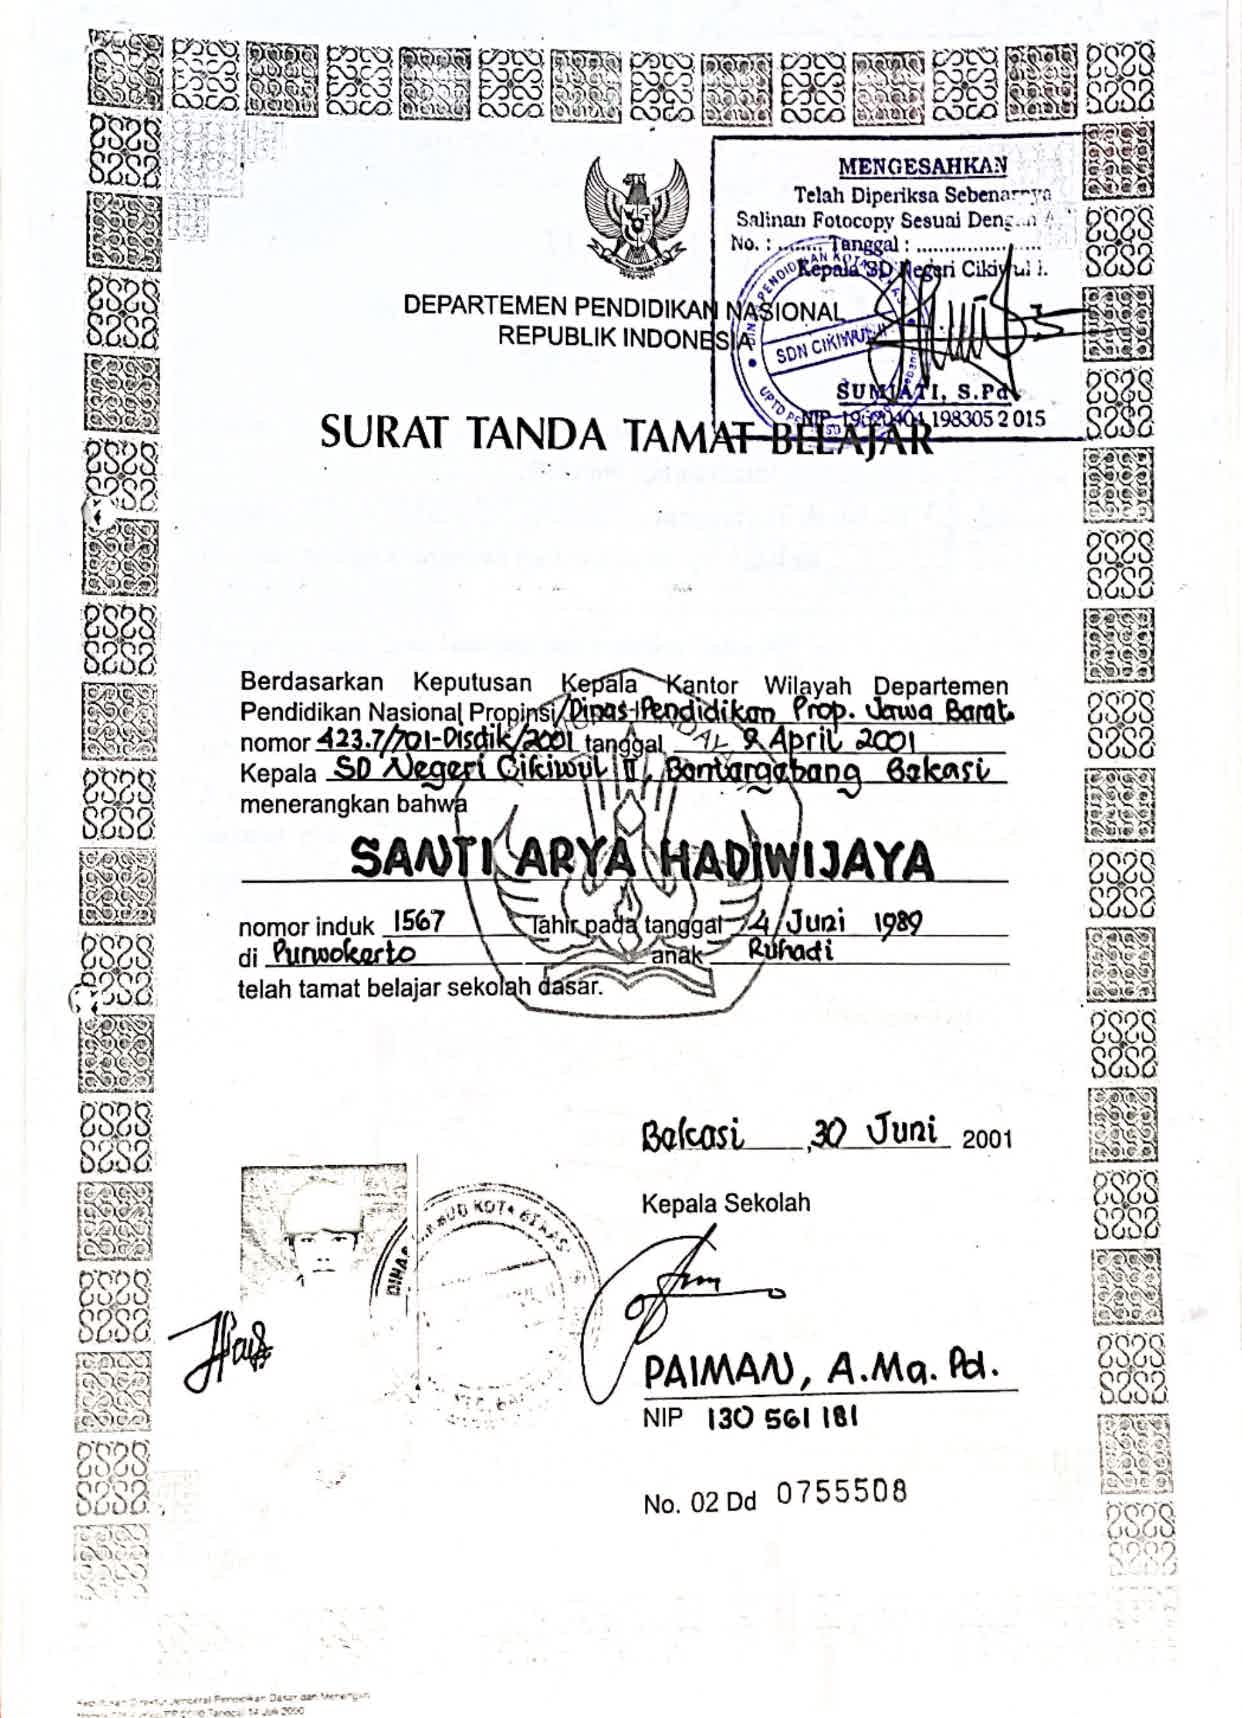 MENGESAHKAN
Telah Diperiksa Sebenarnya
Salinan Fotocopy Sesuai Dengan A
No. : ....... Tanggal : ......................
Kepala SD Negeri Cikiwul I.
DINAS PENDIDIKAN KOTA
SDN CIKIWUL II
UPTD
SUMIATI, S.Pd
NIP. 198305 2 015
DEPARTEMEN PENDIDIKAN NASIONAL
REPUBLIK INDONESIA
SURAT TANDA TAMAT BELAJAR
Berdasarkan Keputusan Kepala Kantor Wilayah Departemen
Pendidikan Nasional Propinsi/Dinas Pendidikan Prop. Jawa Barat
nomor 423.7/701-Disdik/2001 tanggal 9 April 2001
Kepala SD Negeri Cikiwul II, Bantargebang Bekasi
menerangkan bahwa
SANTI ARYA HADIWIJAYA
nomor induk 1567 lahir pada tanggal 4 Juni 1989
di Purwokerto anak Ruhadi
telah tamat belajar sekolah dasar.
Bekasi, 30 Juni 2001
Kepala Sekolah
DINAS KOTA BEKASI
PAIMAN, A.Ma. Pd.
NIP 130 561 181
No. 02 Dd 0755508
Keputusan Direktur Jenderal Pendidikan Dasar dan Menengah
Tanggal 14 Juli 2000